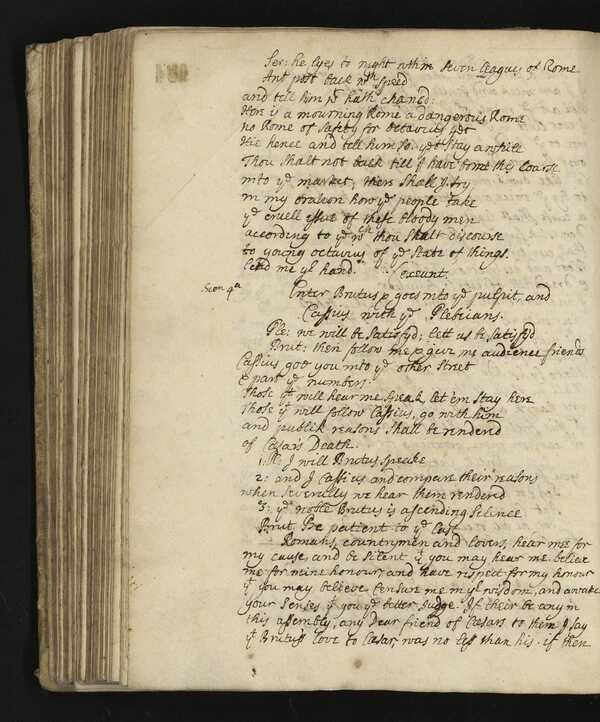 Ser: he lyes to night wthin seven leagues of Rome
Ant post back wth speed
and tell him wt hath chanc'd:
Here is a mourning Rome a dangerous Rome
no Rome of safety for octavius yet
Hie hence and tell him so. yet stay a while
Thou shalt not back till I have borne this Coarse
into ye market, there shall I try
in my oration how ye people take
ye cruell issue of these bloody men
according to ye wch thou shalt discourse
to young octavius of ye state of things.
Lend me yr hand. exeunt.
Scen 4th
Enter Brutus & goes into ye pulpit, and
Cassius with ye Plebeians.
Ple: we will be satisfyd: lett us be satisfyd
Brut: then follow me & give me audience friends
Cassius goe you into ye other street
& part ye numbers:
Those yt will hear me speak, let 'em stay here
Those yt will follow Cassius, go with him
and publik reasons shall be rendred
of Cæsars Death.
1. Pl: I will Brutus speake
2: and I Cassius and compare their reasons
when severally we hear them rendred
3: ye noble Brutus is ascending Silence
Brut. Be patient to ye last
Romans, countrymen and lovers, hear mee for
my cause, and be silent yt you may hear me. believe
me for mine honour, and have respect for my honour
yt you may believe. Censure me in yr wisdom, and awake
your senses yt you ye better Judge. If their be any in
this assembly, any Dear friend of Cæsars to them I say
yt Brutus's love to Cæsar, was no less than his. if then